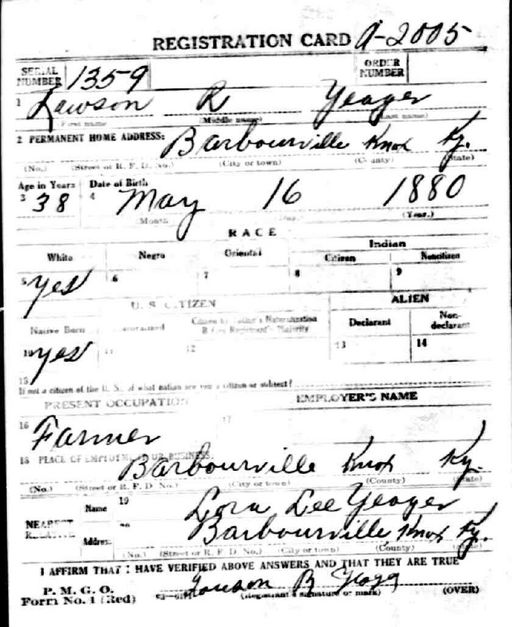 REGISTRATION CARD A-2005
SERIAL NUMBER 1359 ORDER NUMBER
1 Lawson R Yeager
First name (Middle name) Last name)
2 PERMANENT HOME ADDRESS: Barbourville Knox Ky.
(No.) (Street or R. F. D. No.) (City or town) (County) (State)
Age in Years Date of Birth
3 38 4 May 16 1880
Month Day (Year.)
RACE
White Negro Oriental Indian
Citizen Noncitizen
5 Yes 6 7 8 9
U. S. CITIZEN ALIEN
Native Born Naturalized Citizen by Father's Naturalization Before Registrant's Majority Declarant Non-declarant
10 Yes 11 12 13 14
15 If not a citizen of the U. S., of what nation are you a citizen or subject?
PRESENT OCCUPATION EMPLOYER'S NAME
16 Farmer 17
18 PLACE OF EMPLOYMENT OR BUSINESS:
Barbourville Knox Ky.
(No.) (Street or R. F. D. No.) (City or town) (County) (State)
NEAREST RELATIVE
Name 19 Lee Yeager
Address 20 Barbourville Knox Ky.
(No.) (Street or R. F. D. No.) (City or town) (County) (State)
I AFFIRM THAT I HAVE VERIFIED ABOVE ANSWERS AND THAT THEY ARE TRUE
P. M. G. O.
Form No. 1 (Red) (Registrant's signature or mark) (OVER)